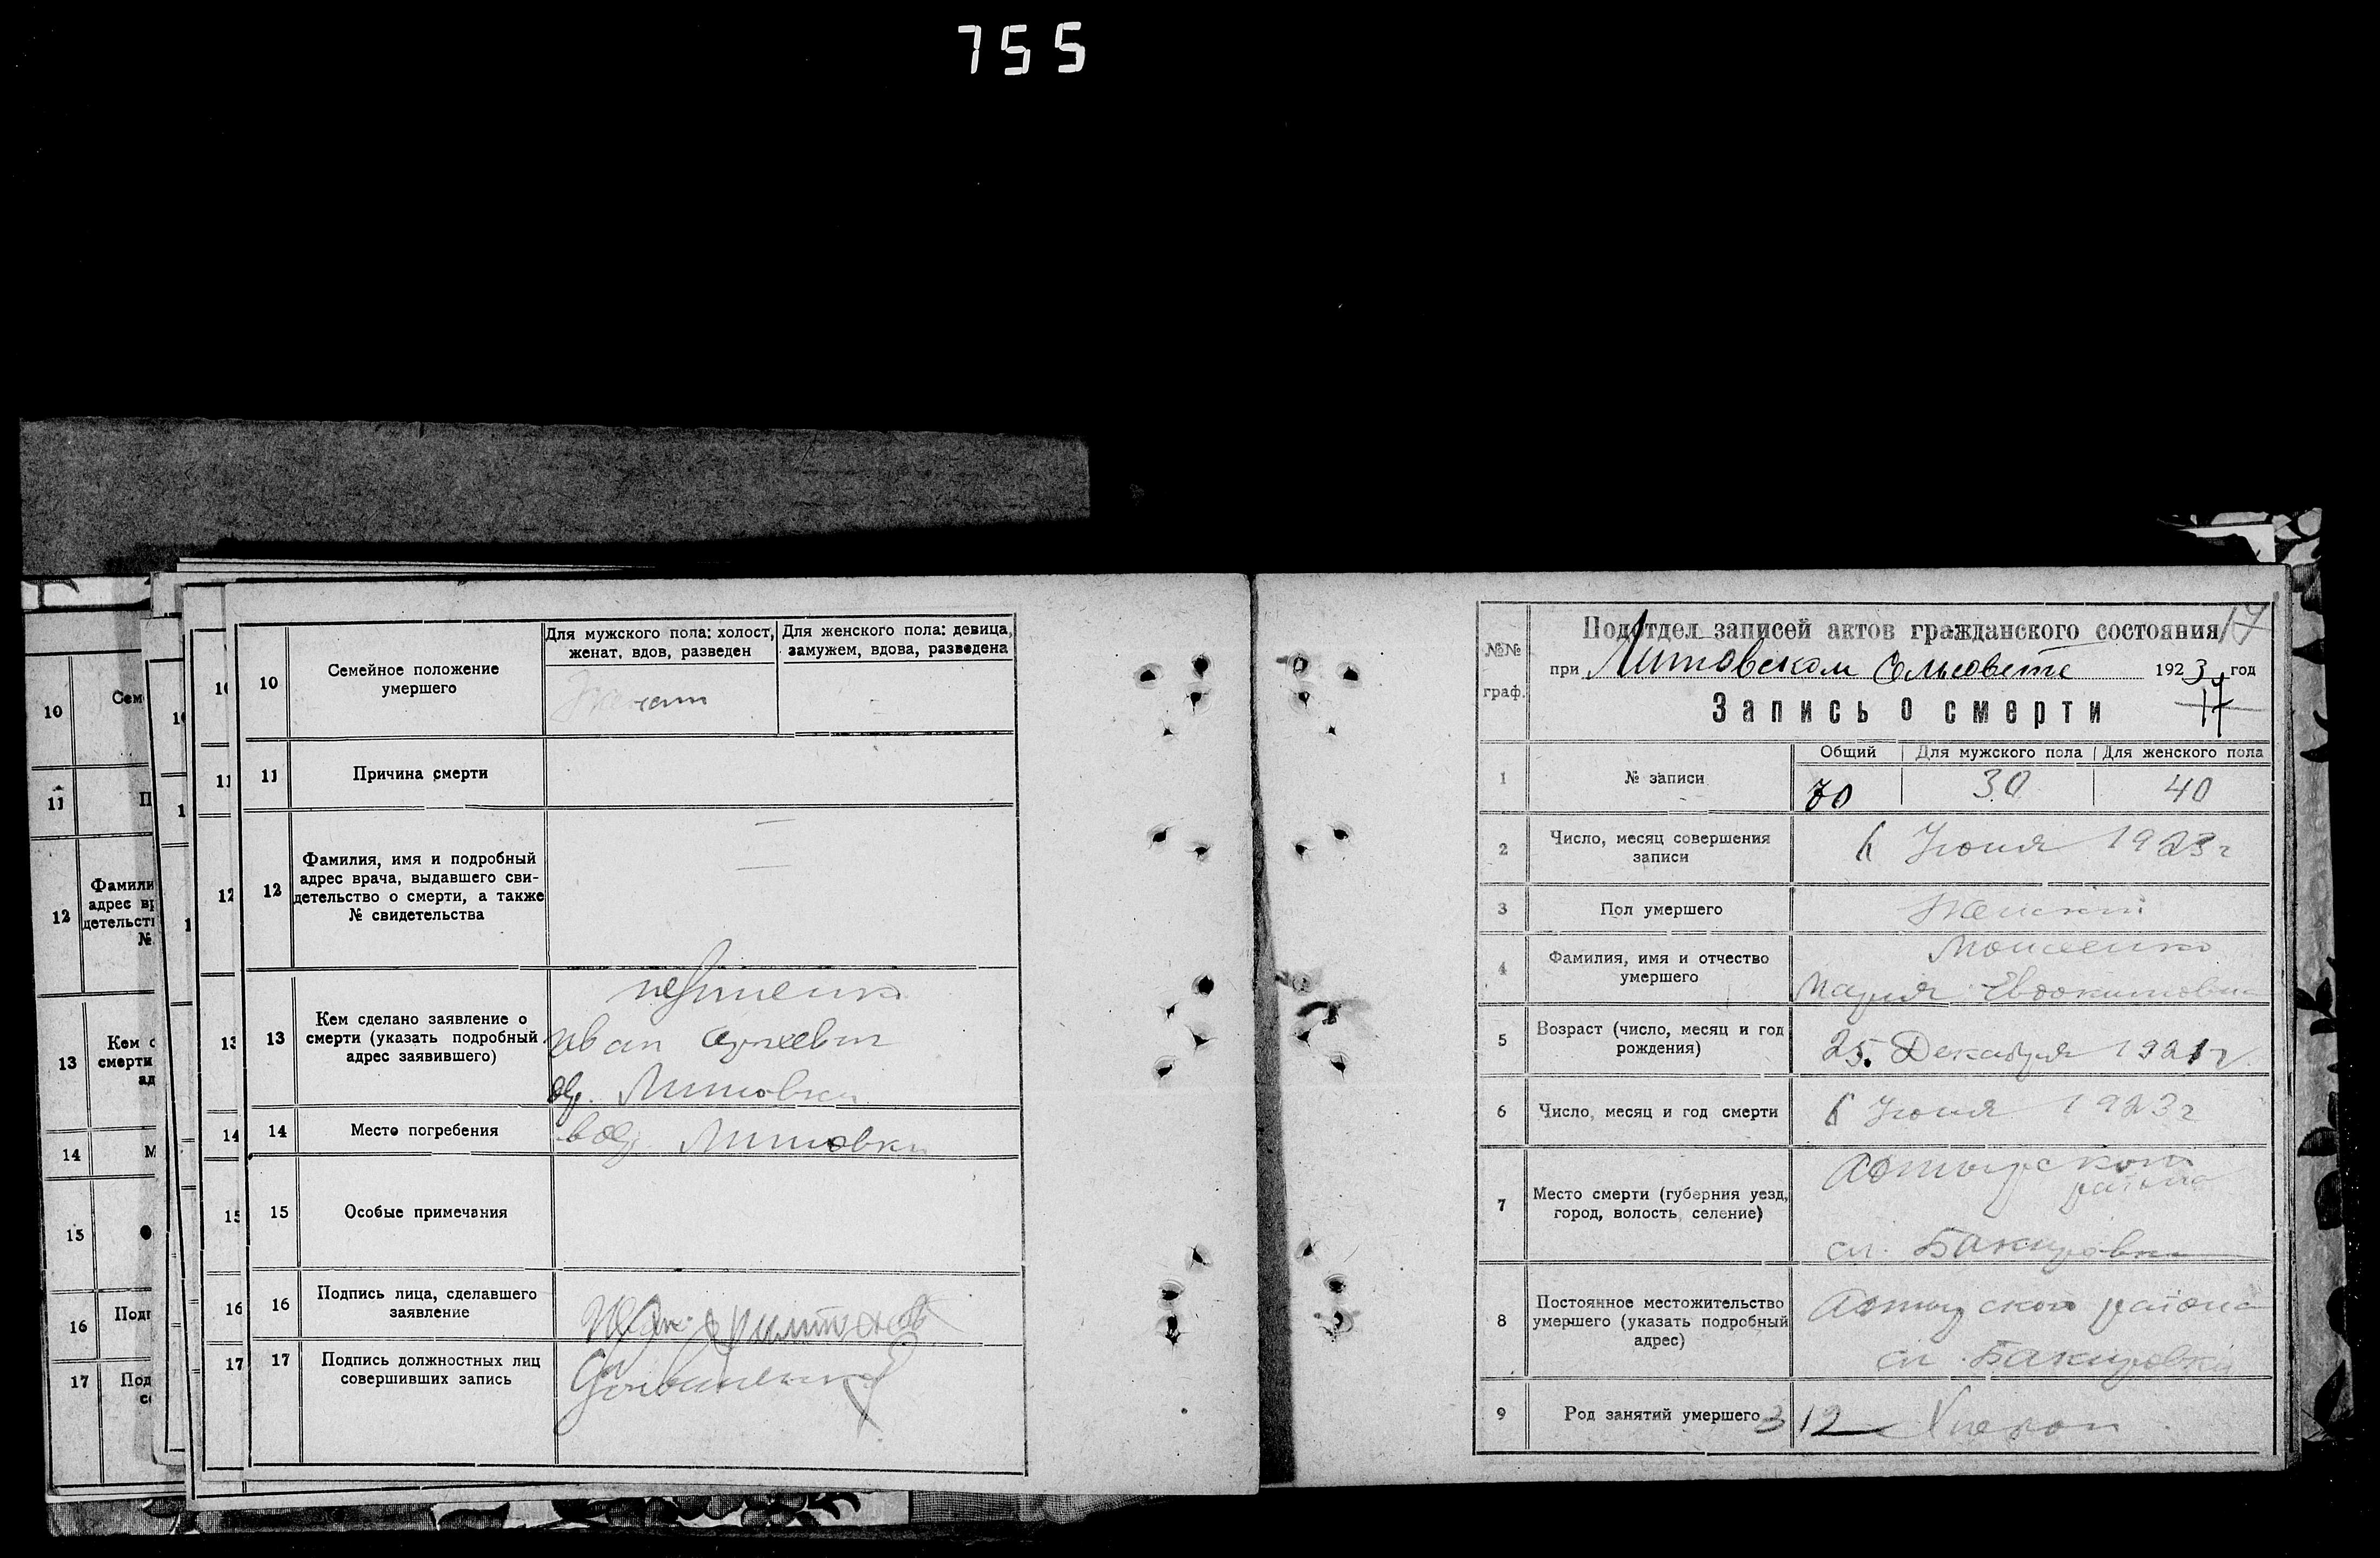 755
10
Сем
11
П
12
Фамили
адрес вр
детельств
№
13
Кем с
смерти
ад
14
М
15
16
Подп
17
Под
со
10
11
12
13
14
15
16
17
10
Семейное положение
умершего
Для мужского пола: холост,
женат, вдов, разведен
Для женского пола: девица,
замужем, вдова, разведена
Женат
11
Причина смерти
12
Фамилия, имя и подробный
адрес врача, выдавшего сви-
детельство о смерти, а также
№ свидетельства
13
Кем сделано заявление о
смерти (указать подробный
адрес заявившего)
Иван
Литовки
14
Место погребения
в Литовки
15
Особые примечания
16
Подпись лица, сделавшего
заявление
17
Подпись должностных лиц
совершивших запись
№№
граф.
Подотдел записей актов гражданского состояния
17
при Литовском сельсовете 1923 год
Запись о смерти
17
1
№ записи
Общий
Для мужского пола
Для женского пола
70
30
40
2
Число, месяц совершения
записи
6 Июня 1923 г
3
Пол умершего
Женский
4
Фамилия, имя и отчество
умершего
Мария Евдокимовна
5
Возраст (число, месяц и год
рождения)
25. Декабря 1921 г
6
Число, месяц и год смерти
6 Июня 1923 г
7
Место смерти (губерния уезд,
город, волость, селение)
района
сл. Бакировка
8
Постоянное местожительство
умершего (указать подробный
адрес)
района
сл. Бакировки
9
Род занятий умершего
312